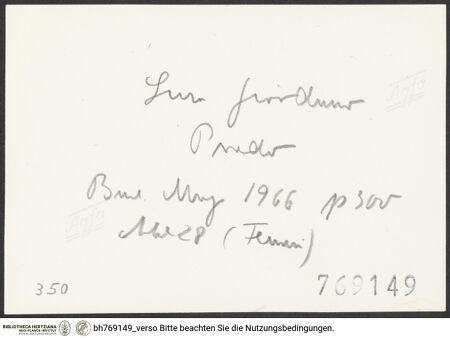 Luca Giordano
Prado
Burl. Mag 1966 p 300
Abb 28 (Ferrari)
350
769149
Agfa
Agfa
BIBLIOTHECA HERTZIANA
MAX-PLANCK-INSTITUT
bh769149_verso Bitte beachten Sie die Nutzungsbedingungen.